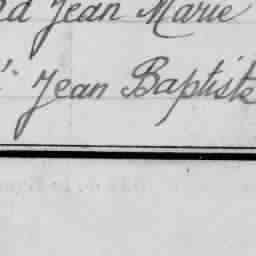 d Jean Marie
Jean Baptiste